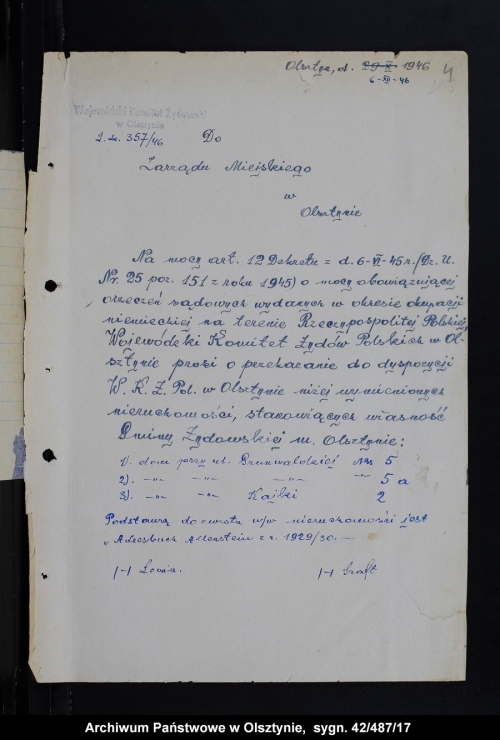 Olsztyn, d. 29-X- 1946
6-XII-46
4
Wojewódzki Komitet Żydowski
w Olsztynie
L. dz. 357/46
Do
Zarządu Miejskiego
w
Olsztynie
Na mocy art. 12 Dekretu z d. 6-VI-45 r. (Dz. U.
Nr. 25 poz. 151 z roku 1945) o mocy obowiązującej
orzeczeń sądowych wydanych w okresie okupacji
niemieckiej na terenie Rzeczypospolitej Polskiej,
Wojewódzki Komitet Żydów Polskich w Ol-
sztynie prosi o przekazanie do dyspozycji
W. K. Ż. Pol. w Olsztynie niżej wymienionych
nieruchomości, stanowiących własność
Gminy Żydowskiej m. Olsztynie:
1). dom przy ul. Grunwaldzkiej Nr. 5
2). -"- -"- -"- -"- 5 a
3). -"- -"- Kajki 2
Podstawą do zwrotu w/w nieruchomości jest
"Adresbuch Allenstein z r. 1929/30. —
/-/
/-/
Archiwum Państwowe w Olsztynie, sygn. 42/487/17